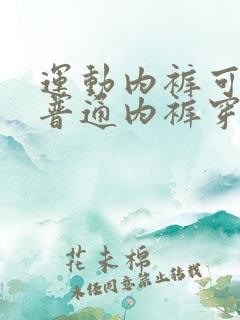 運動內褲可
普通內褲穿
花未棉
未经同意禁止转载